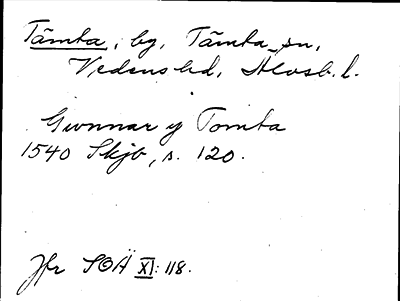 Tåmta, bg, Tåmta sn,
Vedens hd, Älvsb. l.
Gunnar y Tomta
1540 Skjb, s. 120.
Jfr SOÄ XI: 118.